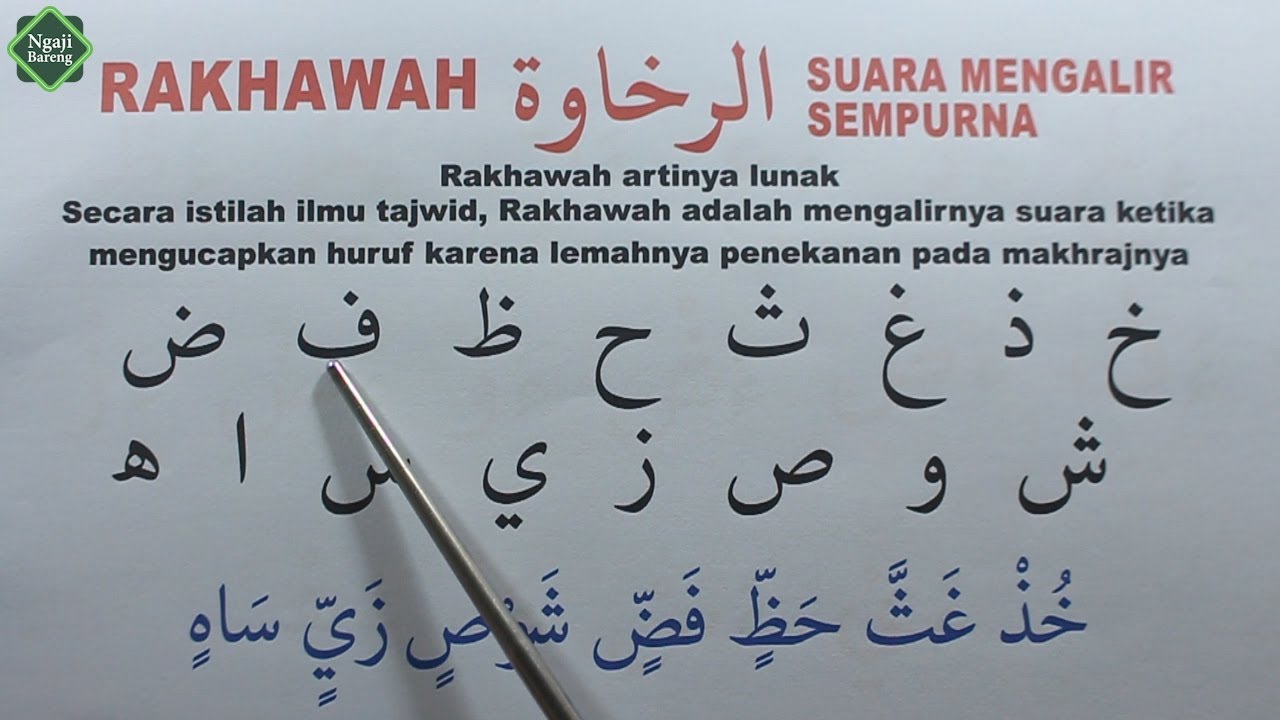 Ngaji
Bareng
RAKHAWAH الرخاوة SUARA MENGALIR
SEMPURNA
Rakhawah artinya lunak
Secara istilah ilmu tajwid, Rakhawah adalah mengalirnya suara ketika
mengucapkan huruf karena lemahnya penekanan pada makhrajnya
خ ذ غ ث ح ظ ف ض
ش و ص ز ي س ا ه
خُذْ غَثَّ حَظٍّ فَضٍّ شَوْصٍ زَيٍّ سَاهٍ